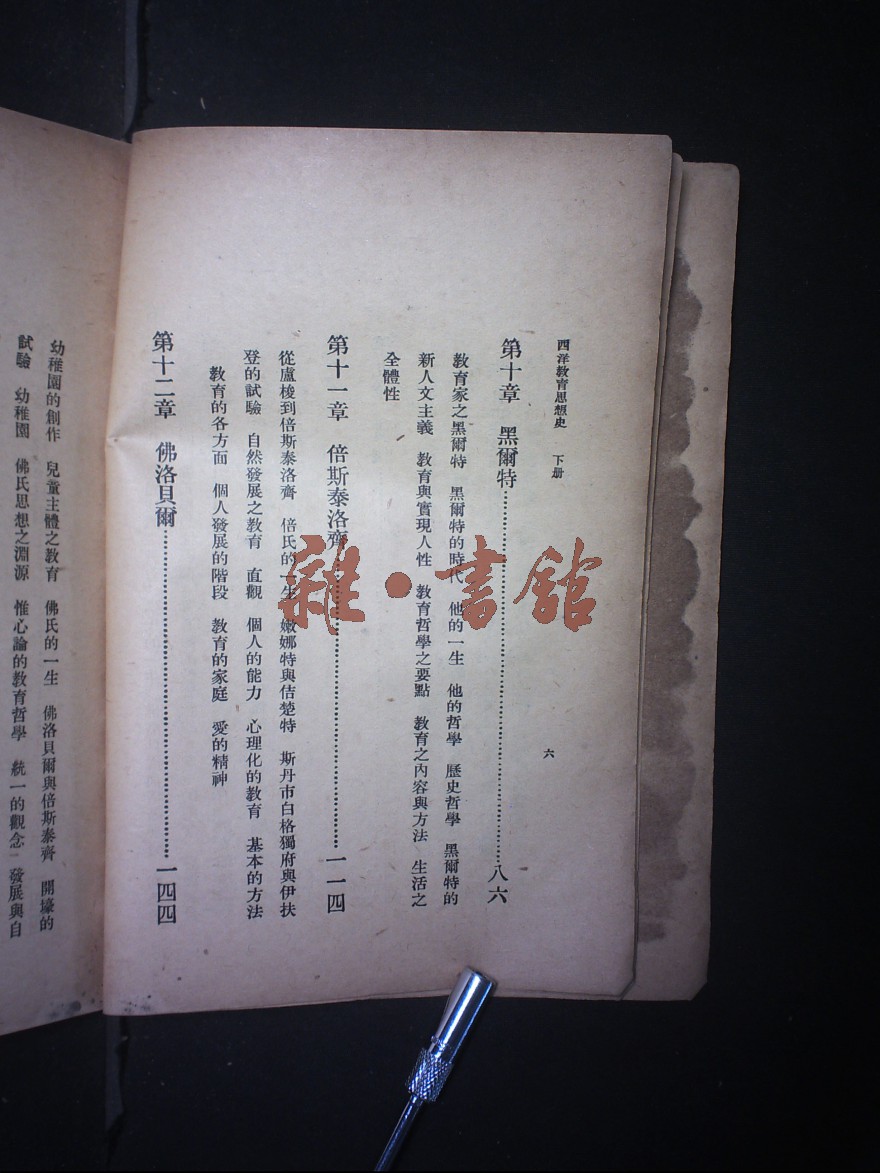 西洋教育思想史 下册
六
第十章 黑爾特……八六
教育家之黑爾特 黑爾特的時代 他的一生 他的哲學 歷史哲學 黑爾特的
新人文主義 教育與實現人性 教育哲學之要點 教育之內容與方法 生活之
全體性
第十一章 倍斯泰洛齊……一一四
從盧梭到倍斯泰洛齊 倍氏的一生 嫩娜特與佶楚特 斯丹市白格獨府與伊扶
登的試驗 自然發展之教育 直觀 個人的能力 心理化的教育 基本的方法
教育的各方面 個人發展的階段 教育的家庭 愛的精神
第十二章 佛洛貝爾……一四四
幼稚園的創作 兒童主體之教育 佛氏的一生 佛洛貝爾與倍斯泰齊 開壕的
試驗 幼稚園 佛氏思想之淵源 惟心論的教育哲學 統一的觀念 發展與自
雜·書館